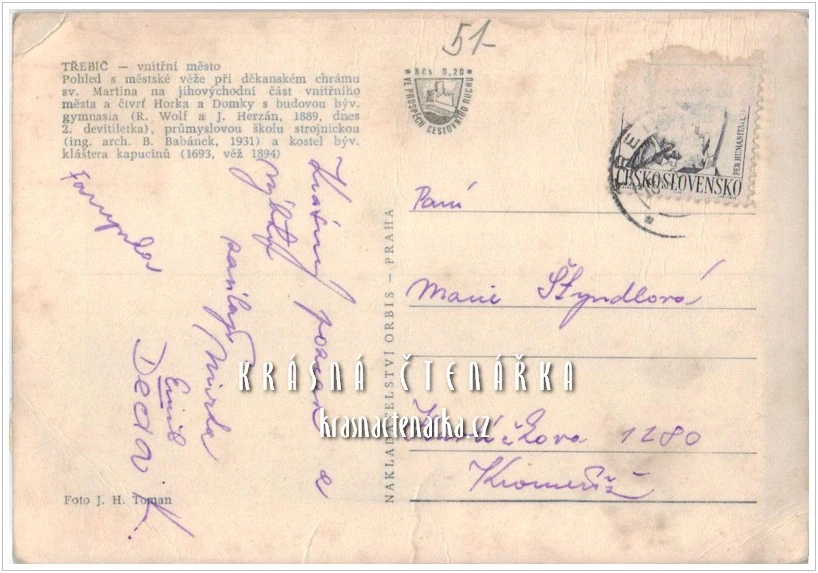 51-
TŘEBÍČ — vnitřní město
Pohled s městské věže při děkanském chrámu
sv. Martina na jihovýchodní část vnitřního
města a čtvrť Horka a Domky s budovou býv.
gymnasia (R. Wolf a J. Herzán, 1889, dnes
2. devítiletka), průmyslovou školu strojnickou
(ing. arch. B. Babánek, 1931) a kostel býv.
kláštera kapucínů (1693, věž 1894)
Kčs 0,20
VE PROSPĚCH CESTOVNÍHO RUCHU
PER HUMANITATEM
ČESKOSLOVENSKO
Krásný pozdrav a
zasílají
Emil
Děda K.
Paní
Marie Štyndlová
1280
Kroměříž
NAKLADATELSTVÍ ORBIS — PRAHA
KRÁSNÁ ČTENÁŘKA
krasnactenarka.cz
Foto J. H. Toman